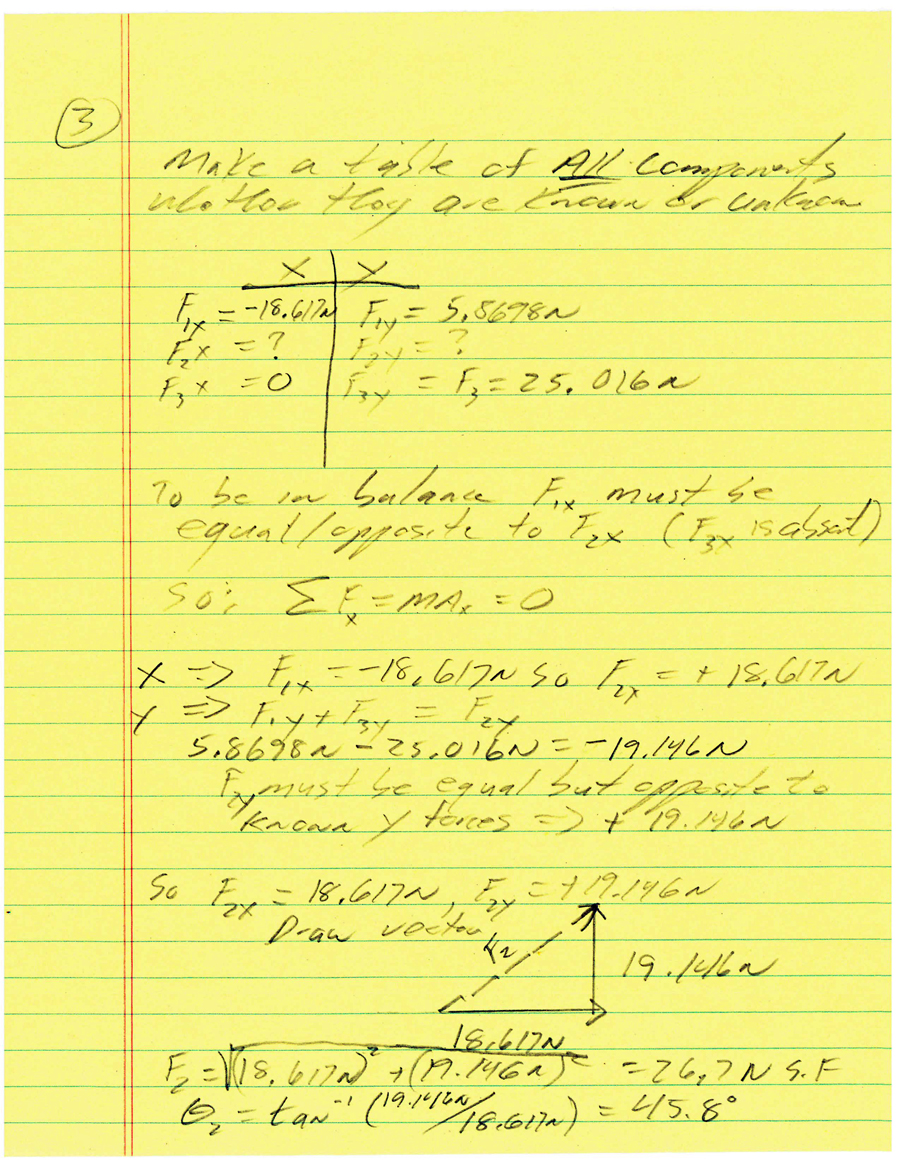 3
Make a table of All components
whether they are known or unknown
X Y
F1x = -18.617N F1y = 5.8698N
F2x = ? F2y = ?
F3x = 0 F3y = F3 = 25.016N
To be in balance F1x must be
equal/opposite to F2x (F3x is absent)
So: ΣFx = MAx = 0
X => F1x = -18.617N so F2x = +18.617N
Y => F1y + F3y = F2y
5.8698N - 25.016N = -19.146N
F2y must be equal but opposite to
known y forces => + 19.146N
So F2x = 18.617N, F2y = +19.146N
Draw vector
F2
19.146N
18.617N
F2 = √(18.617N)² + (19.146N)² = 26.7N S.F
θ2 = tan⁻¹ (19.146N/18.617N) = 45.8°